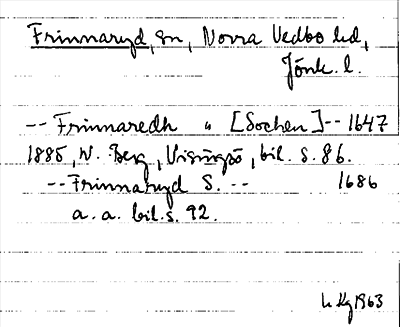 Frinnaryd, sn, Norra Vedbo hd,
Jönk. l.
-- Frinnaredh " [Sochen] -- 1647
1885, W. Berg, Visingsö, bil. s. 86.
-- Frinnaryd S. -- 1686
a. a. bil. s. 92.
1963